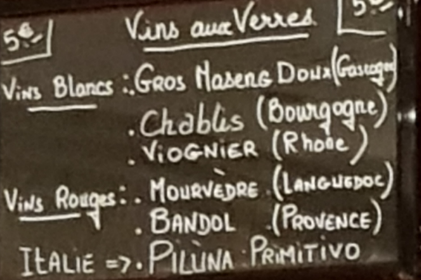 5€- Vins aux Verres 5€-
Vins Blancs : . Gros Maseng Doux (Gascogne)
. Chablis (Bourgogne)
. Viognier (Rhone)
Vins Rouges : . Mourvèdre (Languedoc)
. Bandol (Provence)
Italie => . Piluna Primitivo